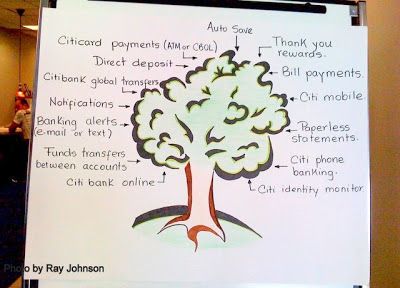 Auto Save
Citicard payments (ATM or CBOL)
Direct deposit
Citibank global transfers
Notifications
Banking alerts
(e-mail or text)
Funds transfers
between accounts
Citi bank online
Thank you
rewards.
Bill payments.
Citi mobile
Paperless
statements.
Citi phone
banking.
Citi identity monitor
Photo by Ray Johnson